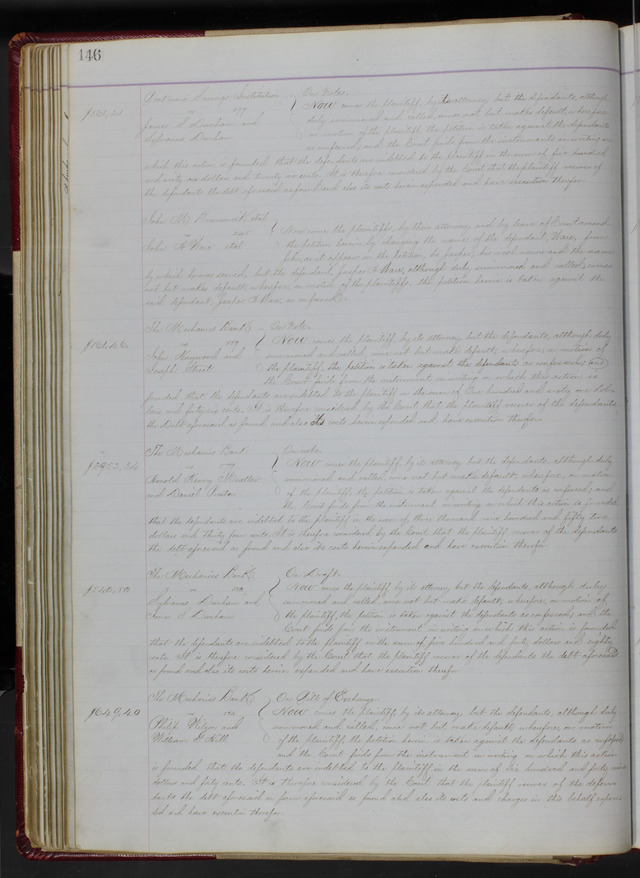 146
Savings Institution On Note.
vs Now comes the plaintiff, by its attorney but the defendants, although
James S Dunham and duly summoned and called, come not but make default, wherefore
Sylvanus Dunham on motion of the plaintiff the petition is taken against the defendants
as confessed, and the Court finds from the instrument in writing on
which this action is founded that the defendants are indebted to the plaintiff in the sum of five hundred
and sixty six dollars and twenty one cents. It is therefore considered by the Court that the plaintiff recover of
the defendants the debt aforesaid as found and also its costs herein expended and have execution therefor
John et al.
vs Now come the plaintiffs, by their attorney, and by leave of Court amend
John F Ware et al the petition herein by changing the name of the defendant, Ware, from
John, as it appears in the petition, to Jasper, his real name and the name
by which he was served, but the defendant, Jasper F Ware, although duly summoned and called, comes
not but makes default, wherefore, on motion of the plaintiffs, the petition herein is taken against the
said defendant, Jasper F. Ware, as confessed.
The Mechanics Bank On Note.
vs Now comes the plaintiff, by its attorney but the defendants, although duly
John Haywood and summoned and called, come not but make default, wherefore, on motion of
Joseph Street the plaintiff, the petition is taken against the defendants as confessed, and
the Court finds from the instrument in writing on which this action is
founded that the defendants are indebted to the plaintiff in the sum of One hundred and sixty one dol-
lars and forty six cents. It is therefore considered by the Court that the plaintiff recover of the defendants
the debt aforesaid as found and also its costs herein expended and have execution therefor
The Mechanics Bank On note.
vs Now comes the plaintiff by its attorney but the defendants, although duly
Arnold Henry Mueller summoned and called come not but make default, wherefore, on motion
and Daniel of the plaintiff, the petition is taken against the defendants as confessed, and
the Court finds from the instrument in writing on which this action is founded
that the defendants are indebted to the plaintiff in the sum of three thousand nine hundred and fifty two
dollars and thirty four cents. It is therefore considered by the Court that the plaintiff recover of the defendants
the debt aforesaid as found and also its costs herein expended and have execution therefor
The Mechanics Bank On Draft.
vs Now comes the plaintiff by its attorney, but the defendants, although duly
Sylvanus Dunham and summoned and called, come not but make default, wherefore, on motion of
James S Dunham the plaintiff, the petition is taken against the defendants as confessed, and the
Court finds from the instrument in writing on which this action is founded
that the defendants are indebted to the plaintiff in the sum of five hundred and forty dollars and eighty
cents. It is therefore considered by the Court that the plaintiff recover of the defendants the debt aforesaid
as found and also its costs herein expended and have execution therefor
The Mechanics Bank On Bill of Exchange.
$649,40 vs Now comes the plaintiff, by its attorney, but the defendants, although duly
Philip Wilson and summoned and called, come not but make default, wherefore, on motion
William G Hill of the plaintiff, the petition herein is taken against the defendants as confessed
and the Court finds from the instrument in writing on which this action
is founded, that the defendants are indebted to the plaintiff in the sum of Six hundred and forty nine
dollars and forty cents. It is therefore considered by the Court that the plaintiff recover of the defen-
dants the debt aforesaid in form aforesaid as found and also its costs and charges in this behalf expen-
ded and have execution therefor.